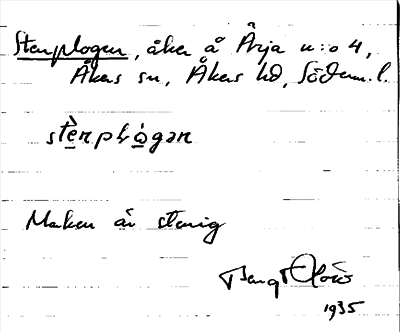 Stenplogen, åker å Ärja n:o 4,
Åkers sn, Åkers hd, Söderm. l.
stè̱nplò̱gan
Marken är stenig
Bengt
1935